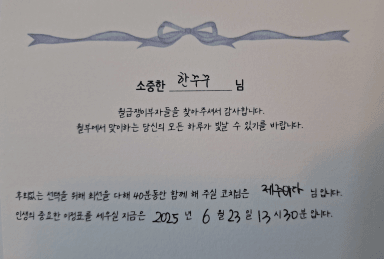 소중한 한꾸꾸 님
월급쟁이부자들을 찾아주셔서 감사합니다.
월부에서 맞이하는 당신의 모든 하루가 빛날 수 있기를 바랍니다.
후회없는 선택을 위해 최선을 다해 40분동안 함께 해 주실 코치님은 제주바다 님 입니다.
인생의 중요한 이정표를 세우실 지금은 2025 년 6 월 23 일 13 시 30 분 입니다.